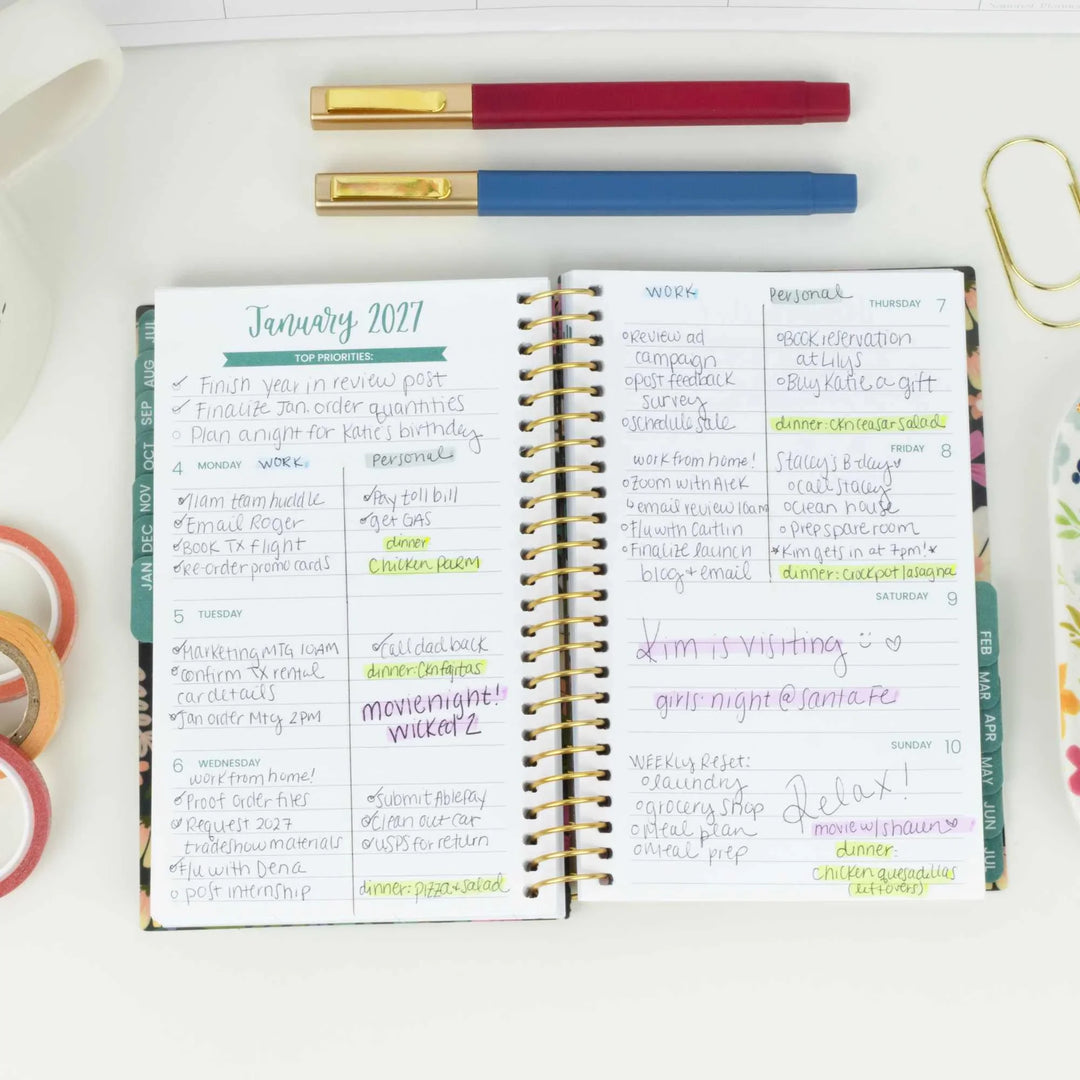 January 2027
TOP PRIORITIES:
✓ Finish year in review post
✓ Finalize Jan. order quantities
○ Plan a night for Katie's birthday
4 MONDAY WORK Personal
11am team huddle
Email Roger
BOOK TX flight
Re-order promo cards
Pay toll bill
get GAS
dinner
Chicken Parm
5 TUESDAY
Marketing MTG 10AM
Confirm TX rental
car details
Jan order Mtg 2PM
Call dad back
dinner: Ckn fajitas
movie night!
WICKED 2
6 WEDNESDAY
work from home!
Proof order files
Request 2027
tradeshow materials
F/u with Dena
post internship
Submit AblePay
Clean out car
USPS for return
dinner: pizza + salad
WORK Personal
THURSDAY 7
Review ad
campaign
post feedback
survey
schedule sale
BOOK reservation
at Lilys
Buy Katie a gift
dinner: ckn ceasar salad
FRIDAY 8
work from home!
Zoom with Alek
email review 10am
F/u with Caitlin
Finalize launch
blog + email
Stacey's B-day
call Stacey
clean house
Prep spare room
*Kim gets in at 7pm!*
dinner: crockpot lasagna
SATURDAY 9
Kim is visiting
girls' night @ Santa Fe
SUNDAY 10
WEEKly Reset:
laundry
grocery shop
Meal plan
Meal prep
Relax!
movie w/ shawn
dinner:
chicken quesadillas
(leftovers)
JUL
AUG
SEP
OCT
NOV
DEC
JAN
FEB
MAR
APR
MAY
JUN
JUL